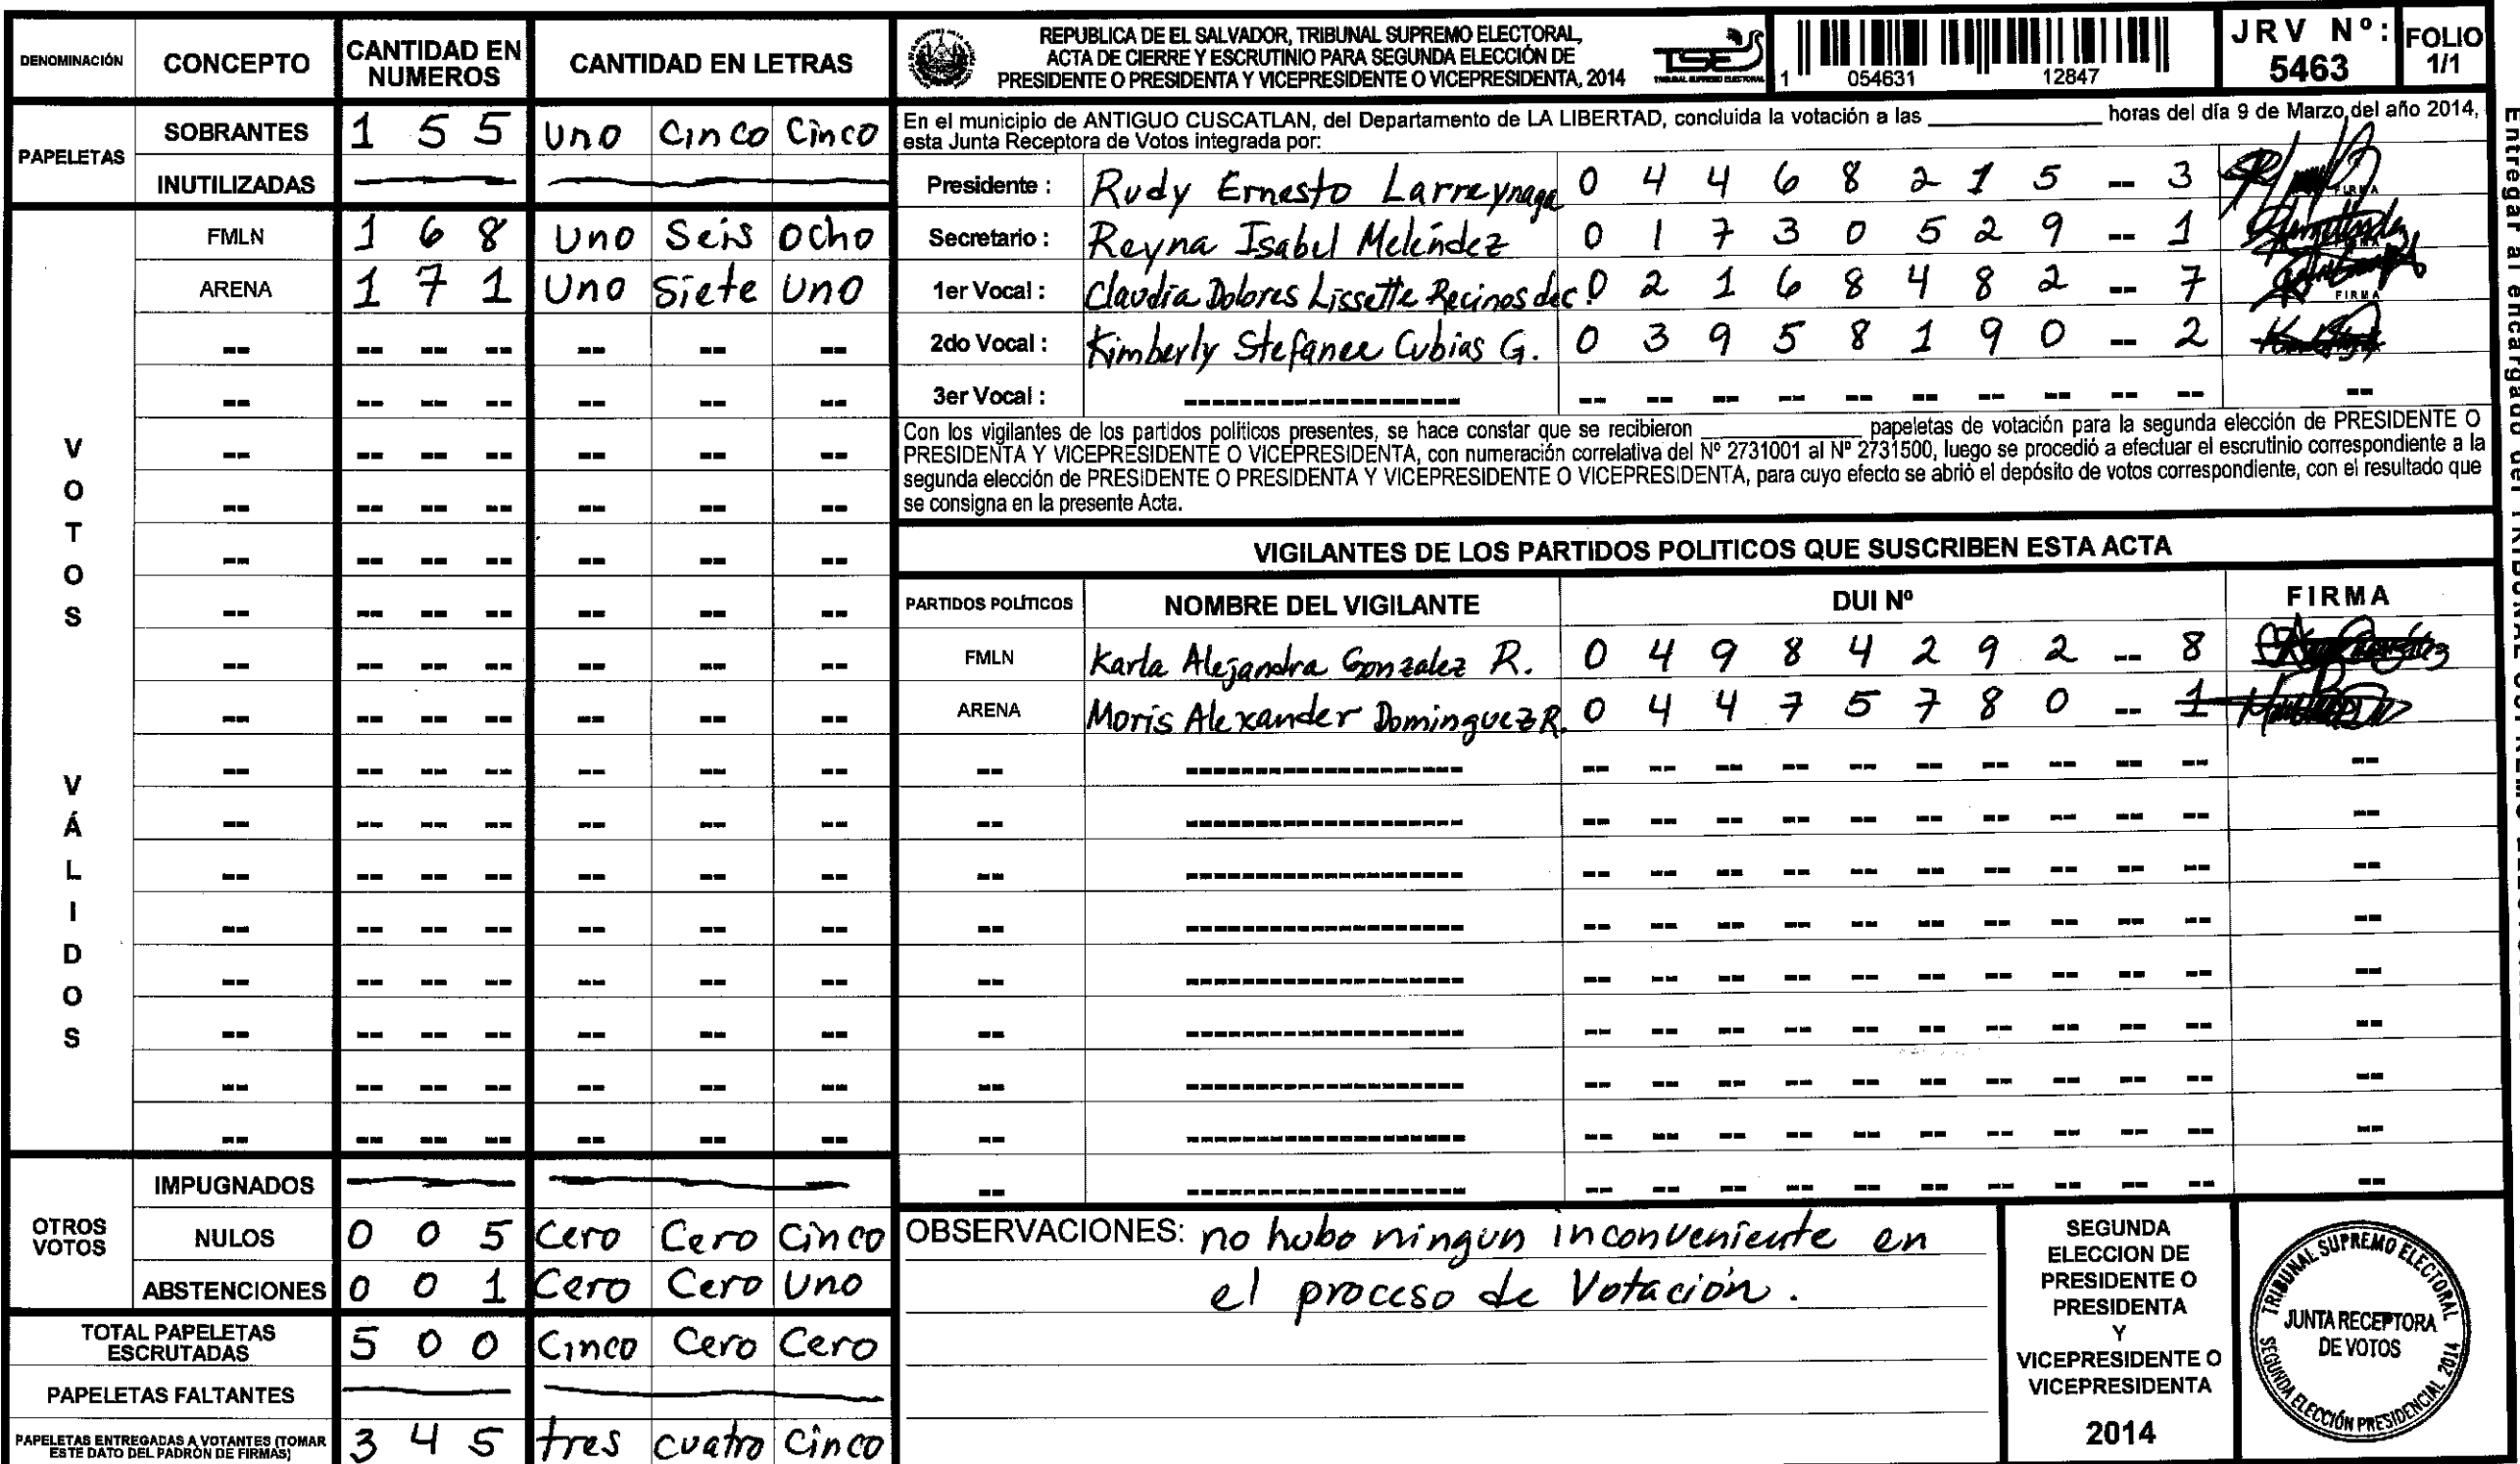 DENOMINACIÓN CONCEPTO CANTIDAD EN NUMEROS CANTIDAD EN LETRAS
PAPELETAS
SOBRANTES 1 5 5 Uno Cinco Cinco
INUTILIZADAS
VOTOS VÁLIDOS
FMLN 1 6 8 Uno Seis Ocho
ARENA 1 7 1 Uno Siete Uno
OTROS VOTOS
IMPUGNADOS
NULOS 0 0 5 Cero Cero Cinco
ABSTENCIONES 0 0 1 Cero Cero Uno
TOTAL PAPELETAS ESCRUTADAS 5 0 0 Cinco Cero Cero
PAPELETAS FALTANTES
PAPELETAS ENTREGADAS A VOTANTES (TOMAR ESTE DATO DEL PADRÓN DE FIRMAS) 3 4 5 tres cuatro Cinco
REPUBLICA DE EL SALVADOR, TRIBUNAL SUPREMO ELECTORAL,
ACTA DE CIERRE Y ESCRUTINIO PARA SEGUNDA ELECCIÓN DE
PRESIDENTE O PRESIDENTA Y VICEPRESIDENTE O VICEPRESIDENTA, 2014
TSE
TRIBUNAL SUPREMO ELECTORAL
1 054631 12847
JRV Nº: 5463
FOLIO 1/1
En el municipio de ANTIGUO CUSCATLAN, del Departamento de LA LIBERTAD, concluida la votación a las ____ horas del día 9 de Marzo del año 2014,
esta Junta Receptora de Votos integrada por:
Presidente : Rudy Ernesto Larreynaga 0 4 4 6 8 2 1 5 -- 3 FIRMA
Secretario : Reyna Isabel Meléndez 0 1 7 3 0 5 2 9 -- 1
1er Vocal : Claudia Dolores Lissette Recinos de C. 0 2 1 6 8 4 8 2 -- 7 FIRMA
2do Vocal : Kimberly Stefanee Cubias G. 0 3 9 5 8 1 9 0 -- 2
3er Vocal :
Con los vigilantes de los partidos politicos presentes, se hace constar que se recibieron ____ papeletas de votación para la segunda elección de PRESIDENTE O
PRESIDENTA Y VICEPRESIDENTE O VICEPRESIDENTA, con numeración correlativa del Nº 2731001 al Nº 2731500, luego se procedió a efectuar el escrutinio correspondiente a la
segunda elección de PRESIDENTE O PRESIDENTA Y VICEPRESIDENTE O VICEPRESIDENTA, para cuyo efecto se abrió el depósito de votos correspondiente, con el resultado que
se consigna en la presente Acta.
VIGILANTES DE LOS PARTIDOS POLITICOS QUE SUSCRIBEN ESTA ACTA
PARTIDOS POLÍTICOS NOMBRE DEL VIGILANTE DUI Nº FIRMA
FMLN Karla Alejandra Gonzalez R. 0 4 9 8 4 2 9 2 -- 8
ARENA Moris Alexander Dominguez R. 0 4 4 7 5 7 8 0 -- 1
OBSERVACIONES: no hubo ningun inconveniente en
el proceso de Votación.
SEGUNDA
ELECCION DE
PRESIDENTE O
PRESIDENTA
Y
VICEPRESIDENTE O
VICEPRESIDENTA
2014
TRIBUNAL SUPREMO ELECTORAL
JUNTA RECEPTORA
DE VOTOS
SEGUNDA ELECCIÓN PRESIDENCIAL 2014
Entregar al encargado del TRIBUNAL SUPREMO